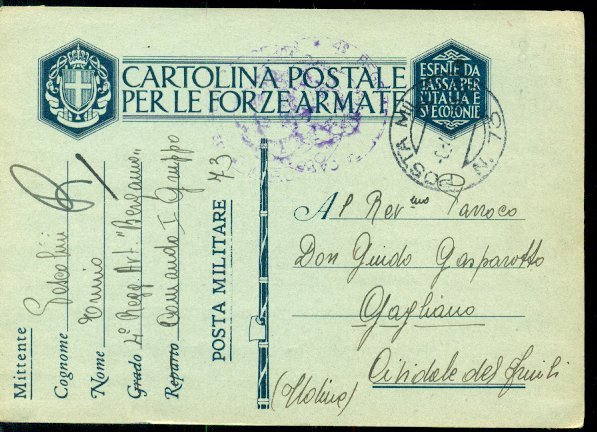 CARTOLINA POSTALE
PER LE FORZE ARMATE
ESENTE DA
TASSA PER
L'ITALIA E
SUE COLONIE
POSTA MIL N. 73
Mittente
Cognome
Nome
Grado 4° Regg. Art. "Bergamo"
Reparto Comando I Gruppo
POSTA MILITARE 73
Al Rev.mo Parroco
Don Guido Gasparotto
Gagliano
Cividale del Friuli
(Udine)